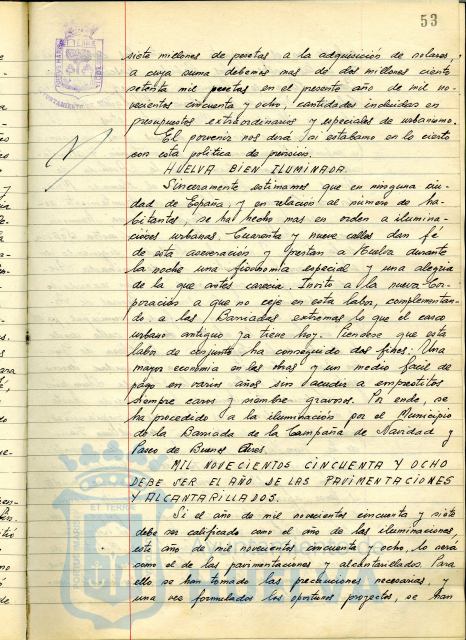 53
siete millones de pesetas a la adquisición de solares,
a cuya suma debemos mas de dos millones ciento
setenta mil pesetas en el presente año de mil no-
vecientos cincuenta y ocho, cantidades incluidas en
presupuestos extraordinarios y especiales de urbanismo.
El porvenir nos dirá si estabamos en lo cierto
con esta política de previsión.
HUELVA BIEN ILUMINADA.
Sinceramente estimamos que en ninguna ciu-
dad de España, y en relación al número de ha-
bitantes, se ha hecho mas en orden a ilumina-
ciones urbanas. Cuarenta y nueve calles dan fé
de esta aseveración y prestan a Huelva durante
la noche una fisonomía especial y una alegria
de la que antes carecia. Invito a la nueva Cor-
poración a que no ceje en esta labor, complementan-
do a las Barriadas extremas lo que el casco
urbano antiguo ya tiene hoy. Piensese que esta
labor de conjunto ha conseguido dos fines: Una
mayor economía en las obras y un medio facil de
pago en varios años sin acudir a emprestitos
siempre caros y siembre gravosos. Por ende, se
ha precedido a la iluminación por el Municipio
de la Barriada de la Campaña de Navidad y
Paseo de Buenos Aires.
MIL NOVECIENTOS CINCUENTA Y OCHO
DEBE SER EL AÑO DE LAS PAVIMENTACIONES
Y ALCANTARILLADOS.
Si el año de mil novecientos cincuenta y siete
debe ser calificado como el año de las iluminaciones,
este año de mil novecientos cincuenta y ocho, lo será
como el de las pavimentaciones y alcantarillados. Para
ello se han tomado las precauciones necesarias, y
una vez formulados los oportunos proyectos, se han